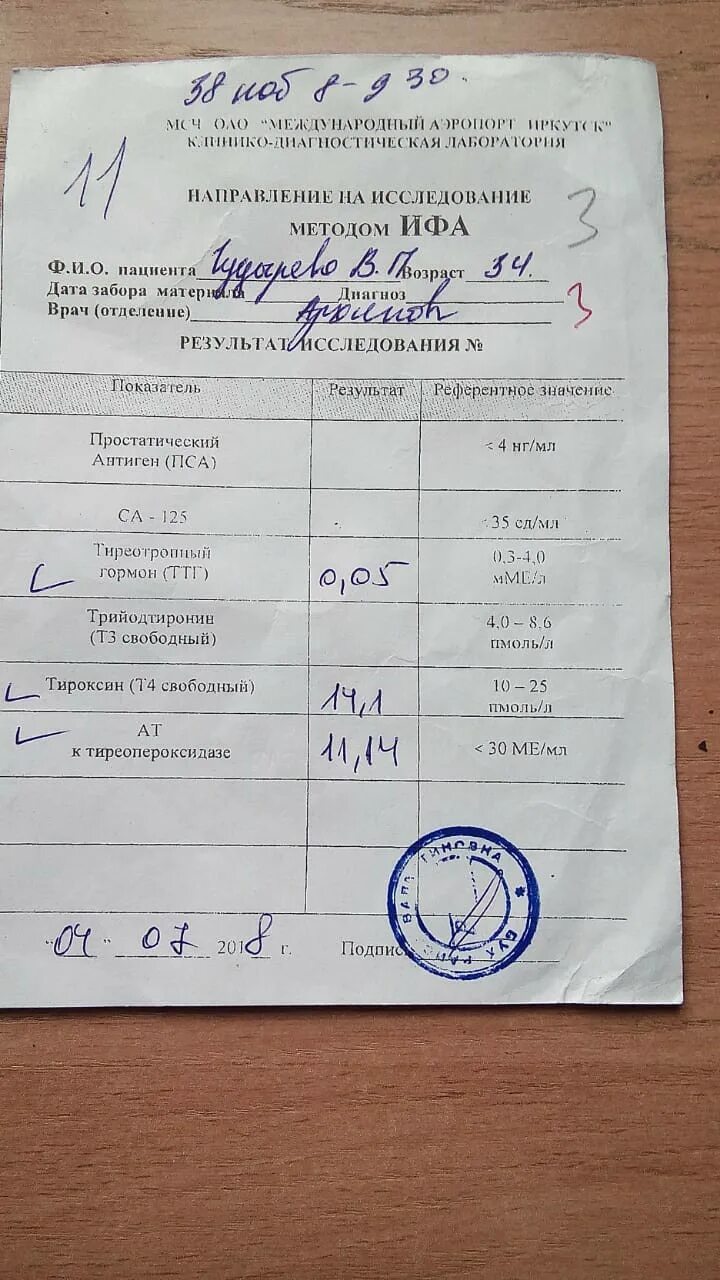 38 каб 8-9 30.
МСЧ ОАО "МЕЖДУНАРОДНЫЙ АЭРОПОРТ ИРКУТСК"
КЛИНИКО-ДИАГНОСТИЧЕСКАЯ ЛАБОРАТОРИЯ
11
НАПРАВЛЕНИЕ НА ИССЛЕДОВАНИЕ
МЕТОДОМ ИФА
3
Ф.И.О. пациента В.П. Возраст 34.
Дата забора материала Диагноз
3
Врач (отделение)
РЕЗУЛЬТАТ ИССЛЕДОВАНИЯ №
Показатель Результат Референтное значение
Простатический
Антиген (ПСА) < 4 нг/мл
СА - 125 <35 ед/мл
Тиреотропный
гормон (ТТГ) 0,05 0,3-4,0
мМЕ/л
Трийодтиронин
(Т3 свободный) 4,0 – 8,6
пмоль/л
Тироксин (Т4 свободный) 14,1 10 – 25
пмоль/л
АТ
к тиреопероксидазе 11,14 < 30 МЕ/мл
"04" 07 2018 г. Подпись